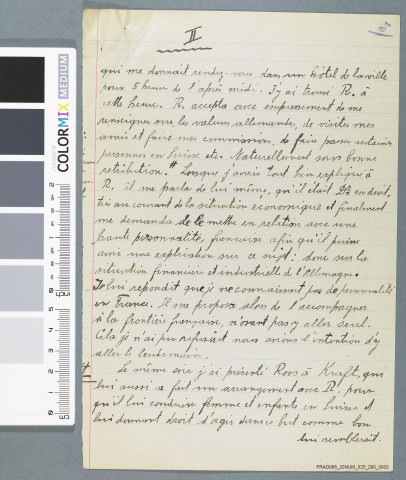 II
qui me donnait rendez-vous dans un hôtel de la ville
pour 5 heures de l'après midi. J'y ai trouvé R. à
cette heure. R. accepta avec empressement de me
renseigner sur les valeurs allemandes, de visiter mes
amis et faire mes commissions, de faire passer certaines
personnes en Suisse etc. Naturellement sans bonne
retribution. # Lorsque j'avais tout bien expliqué à
R. il me parla de lui même, qu'il était Dr en droit,
très au courant de la situation économique et finalement
me demanda de le mettre en relation avec une
haute personnalité française afin qu'il puisse
avoir une explication sur ce sujet: donc sur la
situation financière et industrielle de l'Allemagne.
Je lui repondit que je ne connaissait pas de personnalité
en France. Il me proposa alors de l'accompagner
à la frontière française, n'osant pas y aller seul.
Cela je n'ai pu refusait nous avions l'intention d'y
aller le lendemain.
# Le même soir j'ai présenté Roos à Kraft, qui
lui aussi a fait un arrangement avec R. pour
qu'il lui conduise femme et enfants en Suisse et
lui donnant droit d'agir dans ce but comme bon
lui semblerait.
COLORMIX MEDIUM
FRAD066_20NUM_625_290_0003